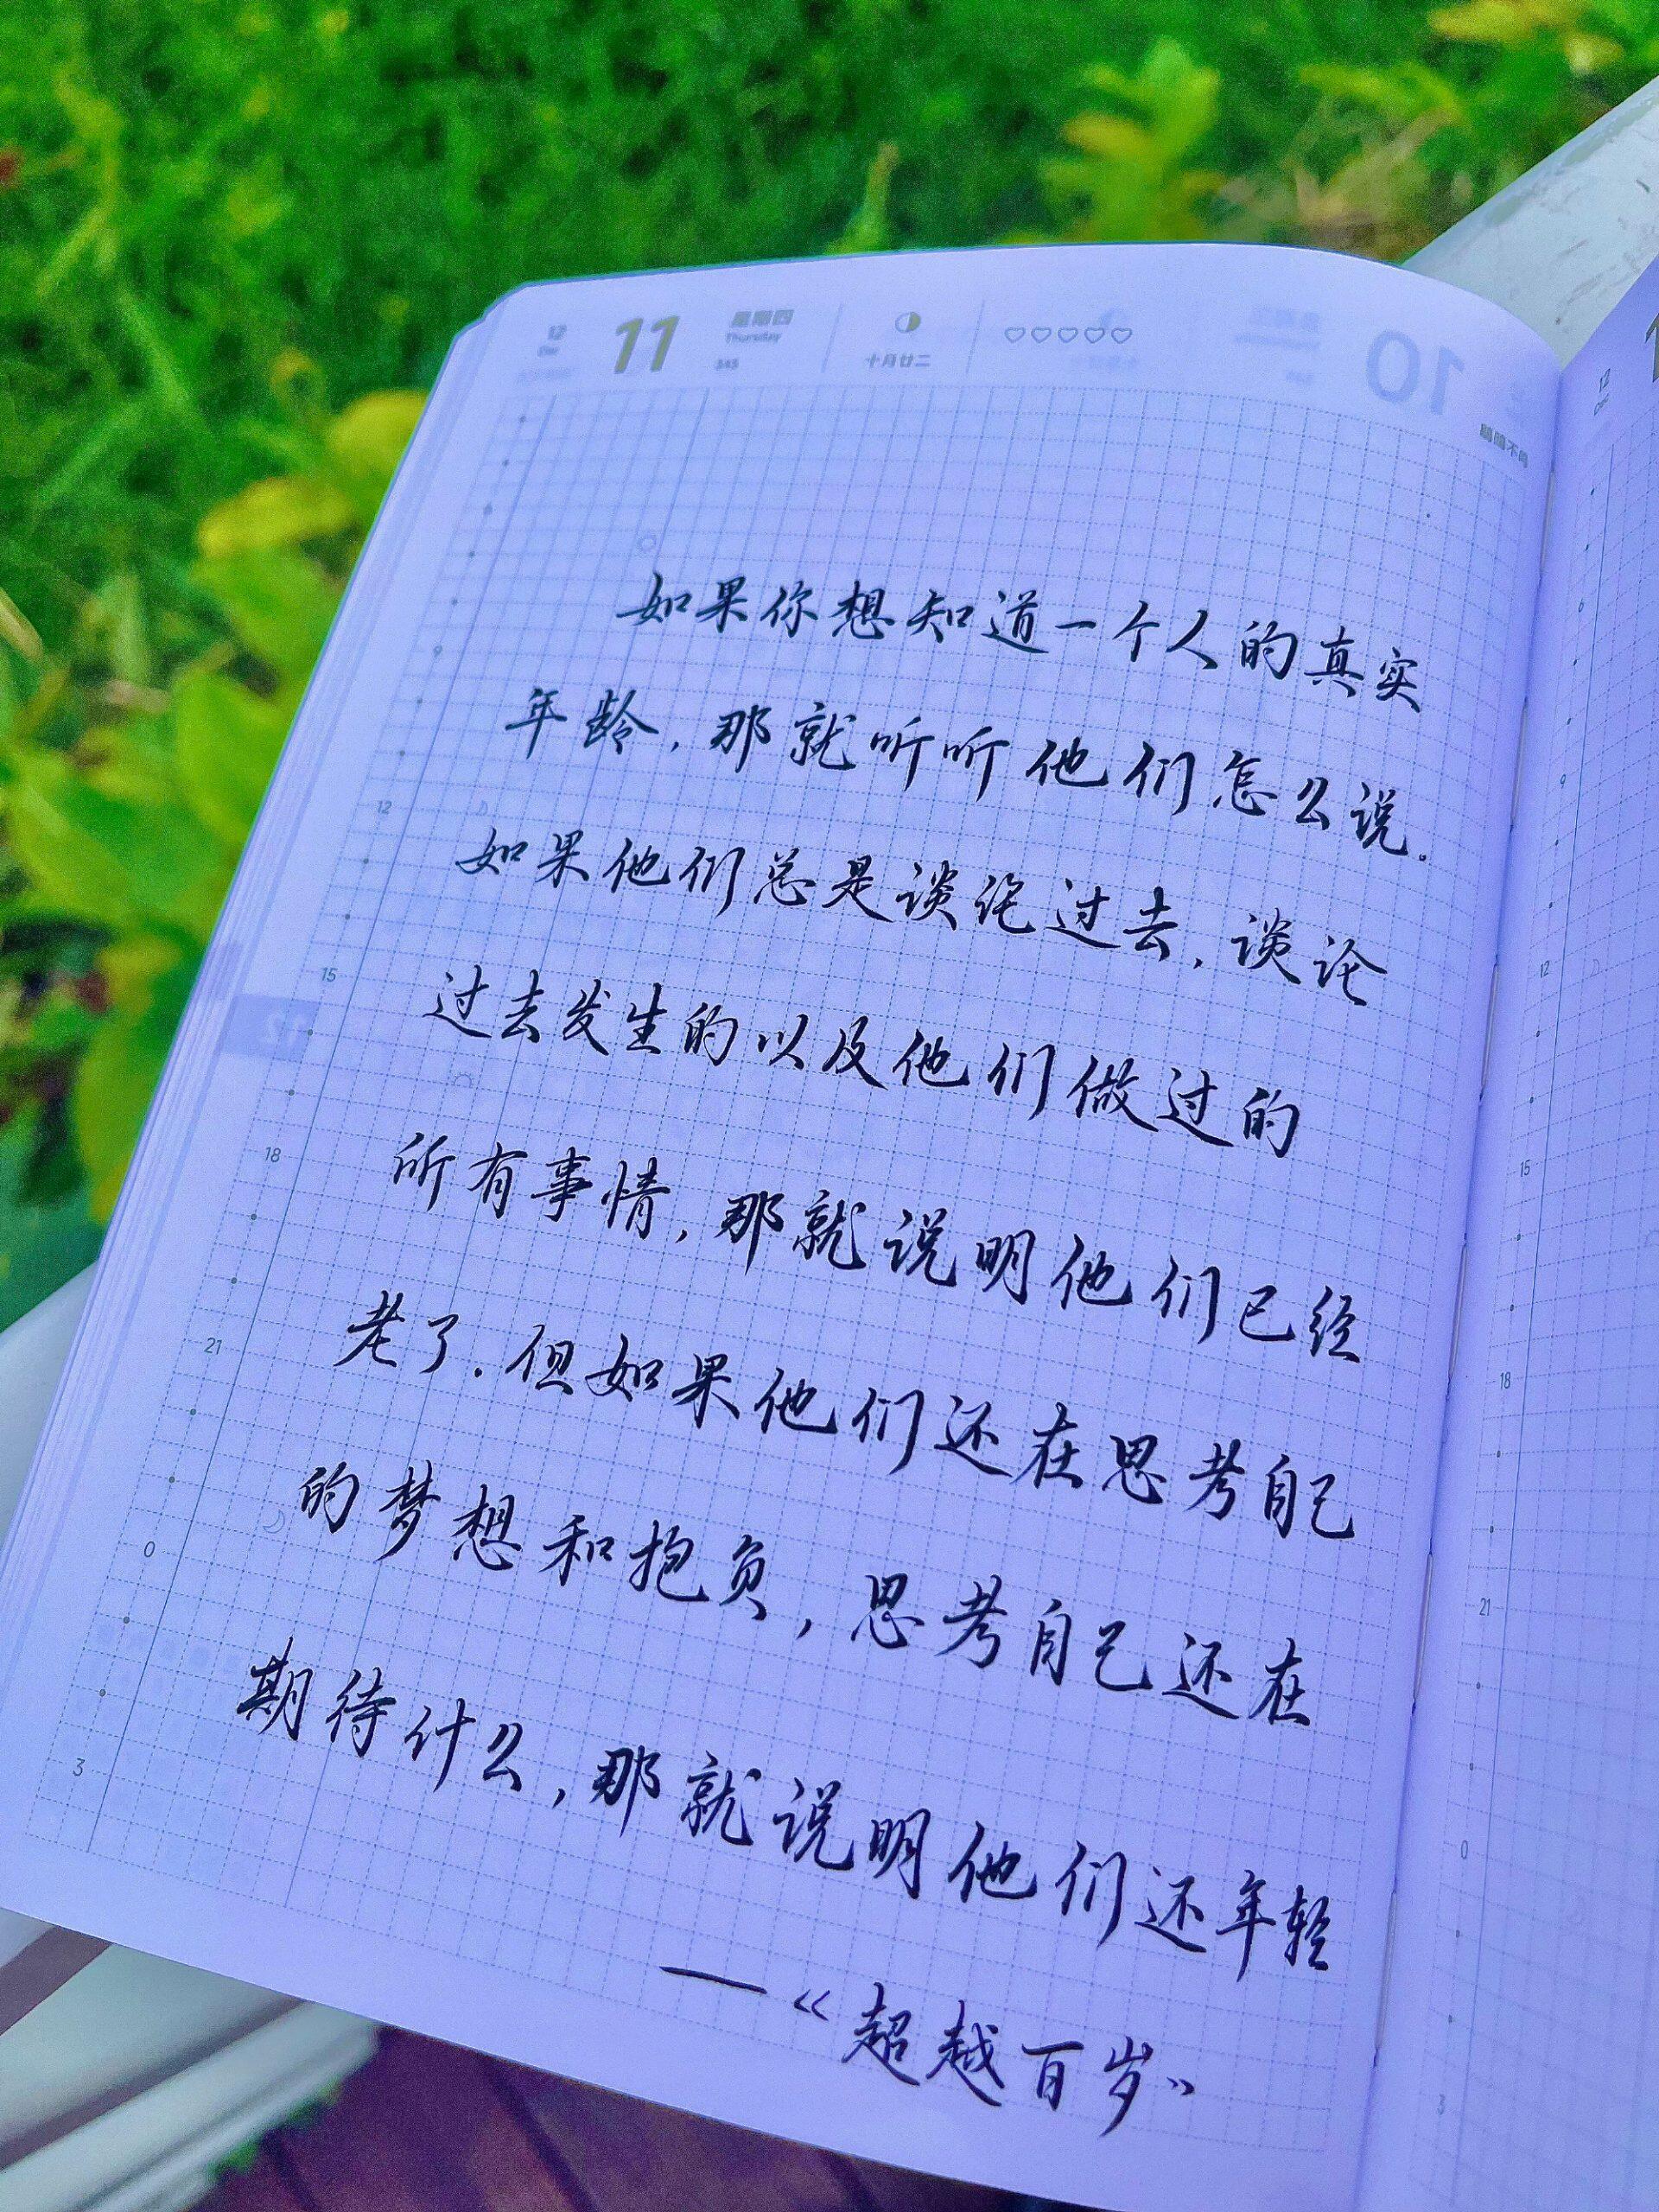 12
11
星期四
Thursday
345
十月廿二
10
如果你想知道一个人的真实
年龄,那就听听他们怎么说.
如果他们总是谈论过去,谈论
过去发生的以及他们做过的
所有事情,那就说明他们已经
老了.但如果他们还在思考自己
的梦想和抱负,思考自己还在
期待什么,那就说明他们还年轻
—《超越百岁》
9
12
15
18
21
0
3
12
9
12
15
18
21
0
3